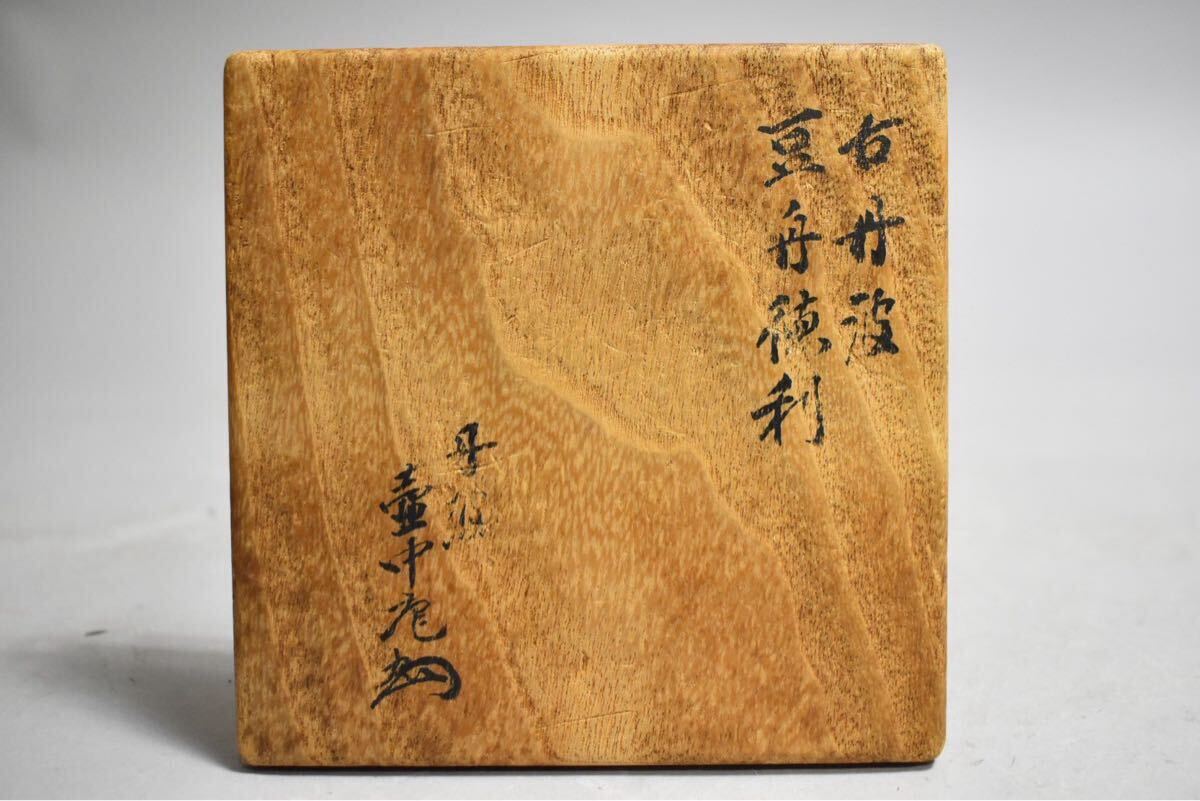 古丹波
豆舟徳利
丹
壷中庵